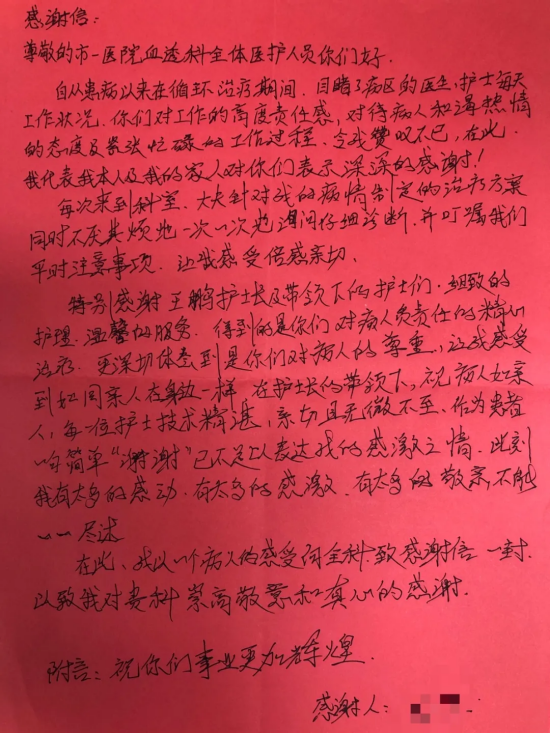 感谢信:
尊敬的市一医院血透科全体医护人员你们好.
自从患病以来在循环治疗期间.目睹了病区的医生,护士每天
工作状况.你们对工作的高度责任感,对待病人和蔼热情
的态度及紧张忙碌的工作过程.令我赞叹不已,在此.
我代表我本人及我的家人对你们表示深深的感谢!
每次来到科室.大夫针对我的病情制定的治疗方案
同时不厌其烦地一次一次地询问仔细诊断.并叮嘱我们
平时注意事项.让我感受倍感亲切.
特别感谢王鹏护士长及带领下的护士们.细致的
护理.温馨的服务.得到的是你们对病人负责任的精心
治疗.更深切体会到是你们对病人的尊重,让我感受
到如同亲人在身边一样.在护士长的带领下,视病人如亲
人,每一位护士技术精湛,亲切且无微不至.作为患者
一句简单"谢谢"已不足以表达我的感激之情.此刻
我有太多的感动.有太多的感激.有太多的敬亲,不能
一一尽述
在此、我以一个病人的感受向全科致感谢信一封.
以致我对贵科崇高敬意和真心的感谢.
附言:祝你们事业更加辉煌.
感谢人: